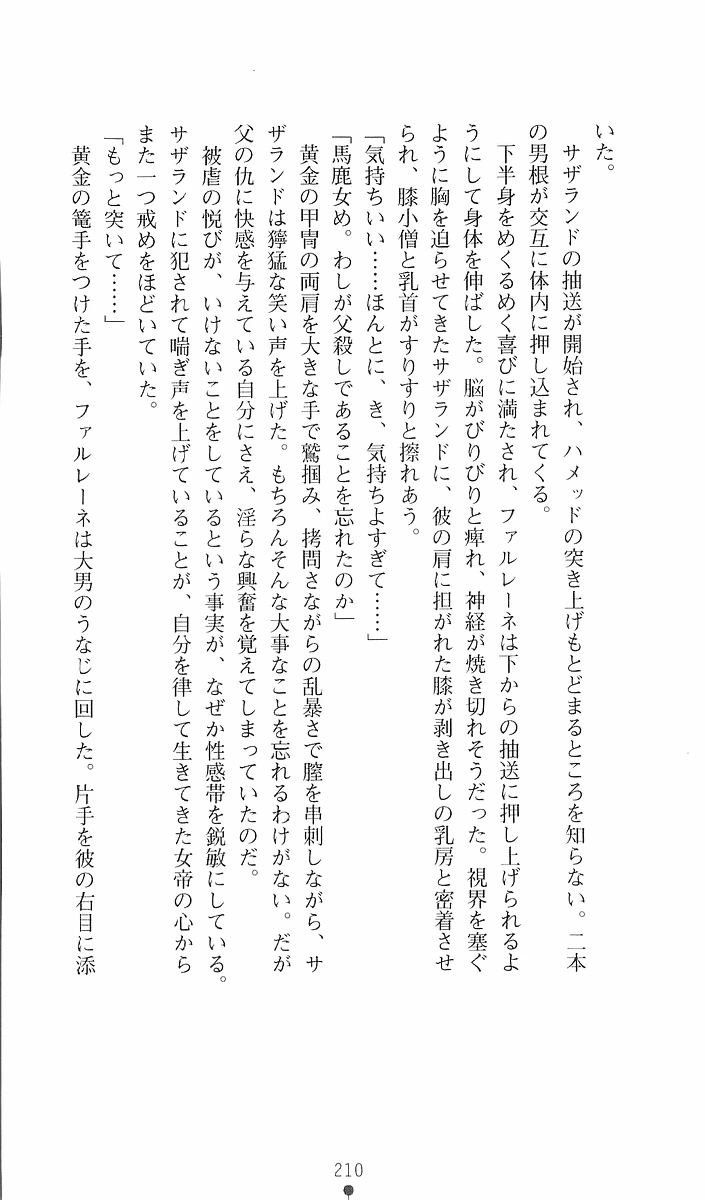 いた。
　サザランドの抽送が開始され、ハメッドの突き上げもとどまるところを知らない。二本
の男根が交互に体内に押し込まれてくる。
　下半身をめくるめく喜びに満たされ、ファルレーネは下からの抽送に押し上げられるよ
うにして身体を伸ばした。脳がびりびりと痺れ、神経が焼き切れそうだった。視界を塞ぐ
ように胸を迫らせてきたサザランドに、彼の肩に担がれた膝が剥き出しの乳房と密着させ
られ、膝小僧と乳首がすりすりと擦れあう。
「気持ちいい……ほんとに、き、気持ちよすぎて……」
「馬鹿女め。わしが父殺しであることを忘れたのか」
　黄金の甲冑の両肩を大きな手で鷲掴み、拷問さながらの乱暴さで膣を串刺しながら、サ
ザランドは獰猛な笑い声を上げた。もちろんそんな大事なことを忘れるわけがない。だが
父の仇に快感を与えている自分にさえ、淫らな興奮を覚えてしまっていたのだ。
　被虐の悦びが、いけないことをしているという事実が、なぜか性感帯を鋭敏にしている。
サザランドに犯されて喘ぎ声を上げていることが、自分を律して生きてきた女帝の心から
また一つ戒めをほどいていた。
「もっと突いて……」
　黄金の篭手をつけた手を、ファルレーネは大男のうなじに回した。片手を彼の右目に添
210